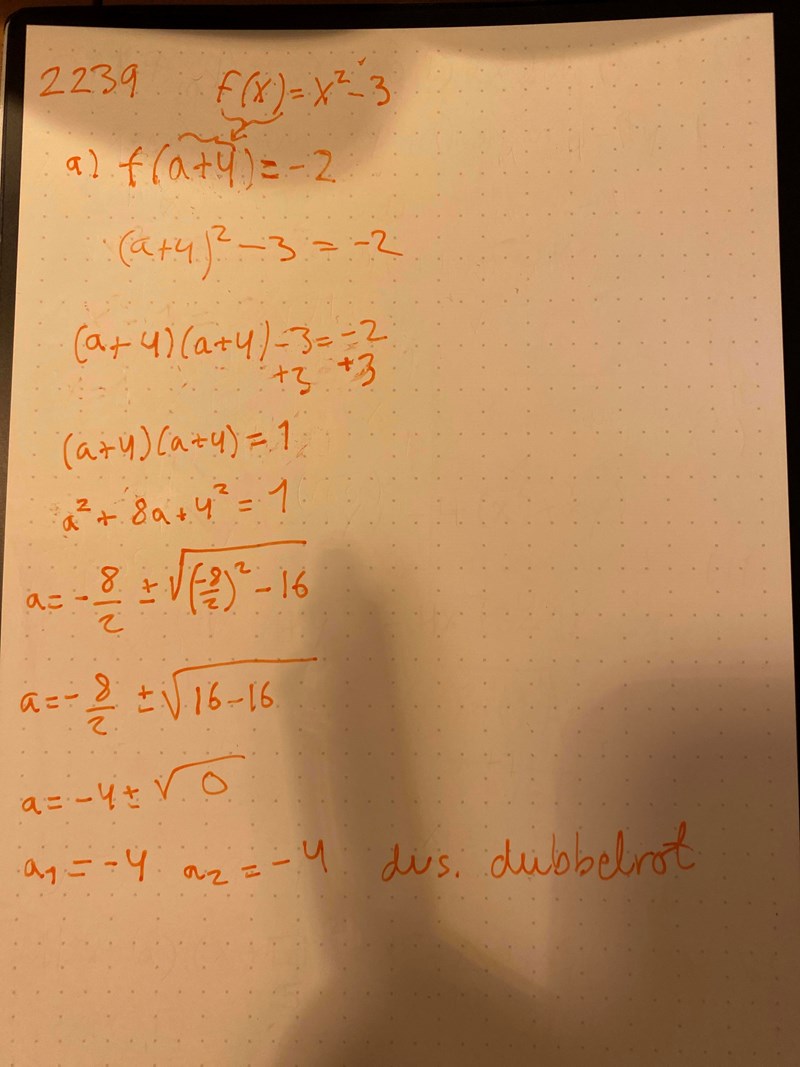 2239 f(x) = x² - 3
a) f(a+4) = -2
(a+4)² - 3 = -2
(a+4)(a+4) - 3 = -2
+3 +3
(a+4)(a+4) = 1
a² + 8a + 4² = 1
a = - 8/2 ± √((-8/2)² - 16)
a = - 8/2 ± √(16-16)
a = -4 ± √0
a₁ = -4 a₂ = -4 dvs. dubbelrot